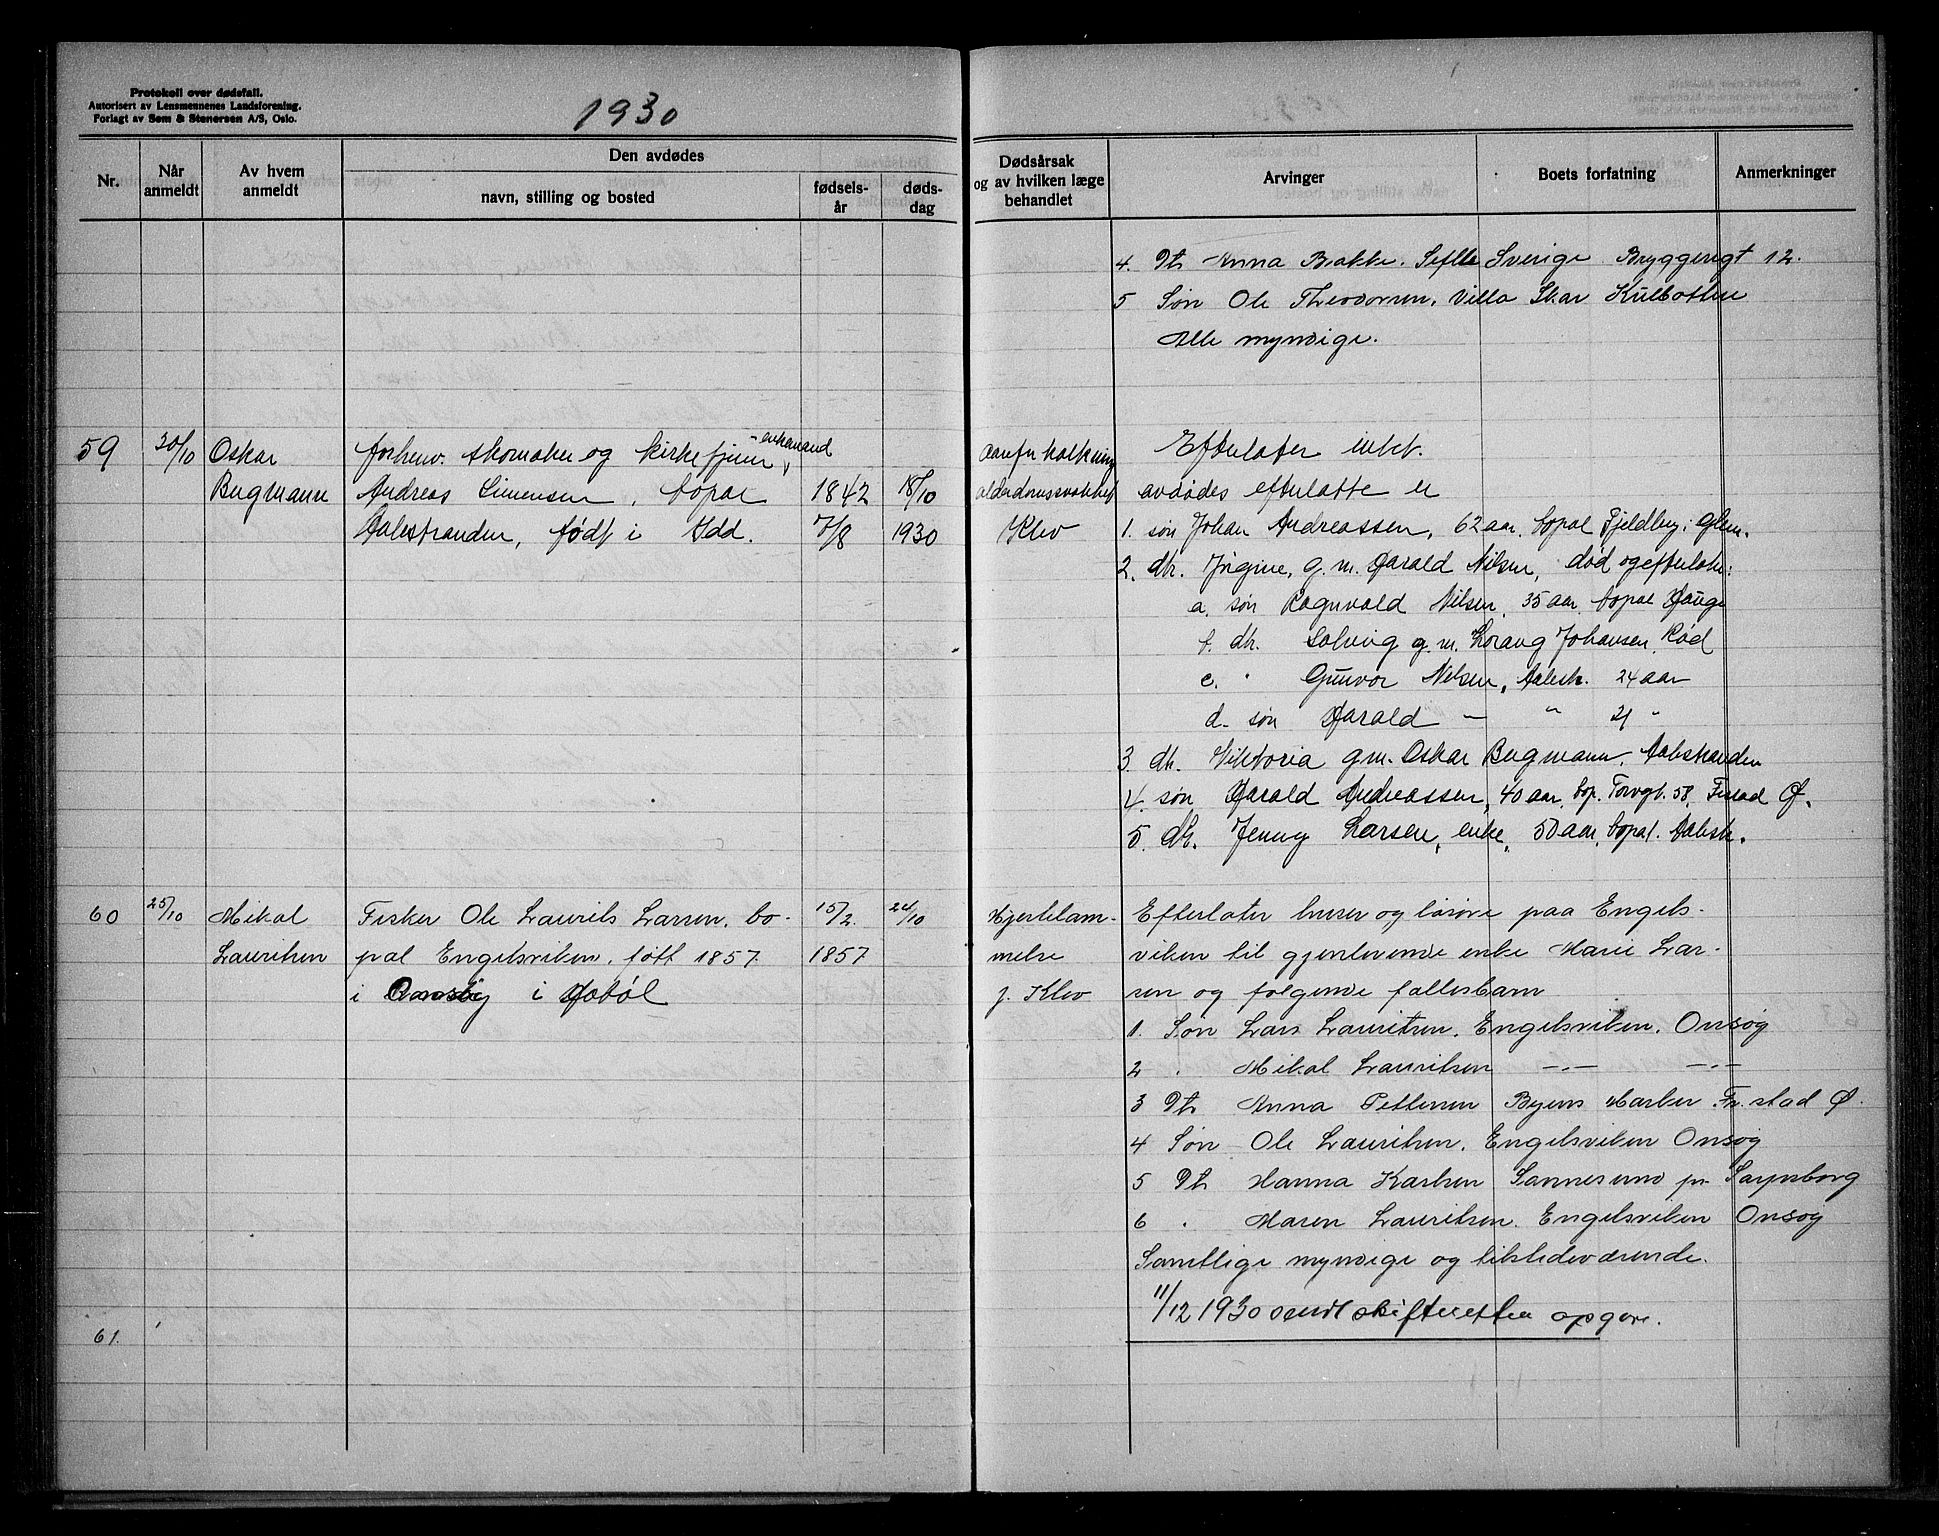 Protokoll over dødsfall.
Autorisert av Lensmennenes Landsforening.
Forlagt av Søm & Stenersen A/S, Oslo.
1930
Nr.
Når anmeldt
Av hvem anmeldt
Den avdødes
navn, stilling og bosted
fødselsår
dødsdag
Dødsårsak og av hvilken læge behandlet
Arvinger
Boets forfatning
Anmerkninger
4. Dt. Anna Bakke. Seffle Sverige Bryggerigt 12.
5 Søn Ole Theodorsen, Villa Skar Kulbotten
Alle myndige.
59
20/10
Oskar
Bugmann
forhenv. skomaker og kirketjener, enkemand
Andreas Simensen, bopæl
Aalestranden, født i Idd.
1842
7/8
18/10
1930
alderdomssvakhet
Klev
Efterlater intet.
avdødes efterlatte er
1. søn Johan Andreassen, 62 aar, bopæl Fjeldberg i Glem.
2. dtr. Jrgine, g.m. Harald Nilsen, død og efterlater:
a. søn Ragnvald Nilsen, 35 aar, bopæl Hauge
b. dtr. Solveig g.m. Lorang Johansen, Rød
c. " Gunvor Nilsen, Aalestr. 24 aar
d. søn Harald — " 21 "
3. dtr. Viktoria g.m. Oskar Bugmann, Aalestranden
4. søn Harald Andreassen, 40 aar, bop. Torvgt. 58, F.stad Ø.
5. dtr. Jenny Larsen, enke, 50 aar, bopæl. Aalestr.
60
25/10
Mikal
Lauritsen
Fisker Ole Laurits Larsen, bo-
pæl Engelsviken, født 1857
i Raasby i Hobøl
15/2.
1857
24/10
Hjertelam-
melse
J. Klev
Efterlater huser og løsøre paa Engels-
viken til gjenlevende enke Marie Lar-
sen og følgende fællesbarn
1. Søn Lars Lauritsen, Engelsviken, Onsøy
2 " Mikal Lauritsen —"— —"—
3 Dt. Anna Pettersen Byens Marker Fr.stad Ø.
4 Søn Ole Lauritsen, Engelsviken Onsøy
5 Dt. Hanna Karlsen Sannesund pr. Sarpsborg
6 " Maren Lauritsen. Engelsviken Onsøy
Samtlige myndige og tilstedeværende.
11/12 1930 sendt skifteretten opgave.
61.